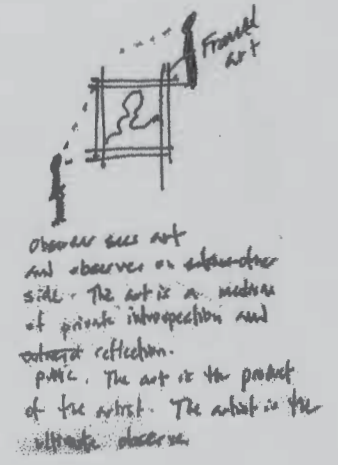 Framed
art
observer sees art
and observer on other
side. The art is a medium
of private introspection and
reflection.
The art is the product
of the artist. The artist is the
ultimate observer